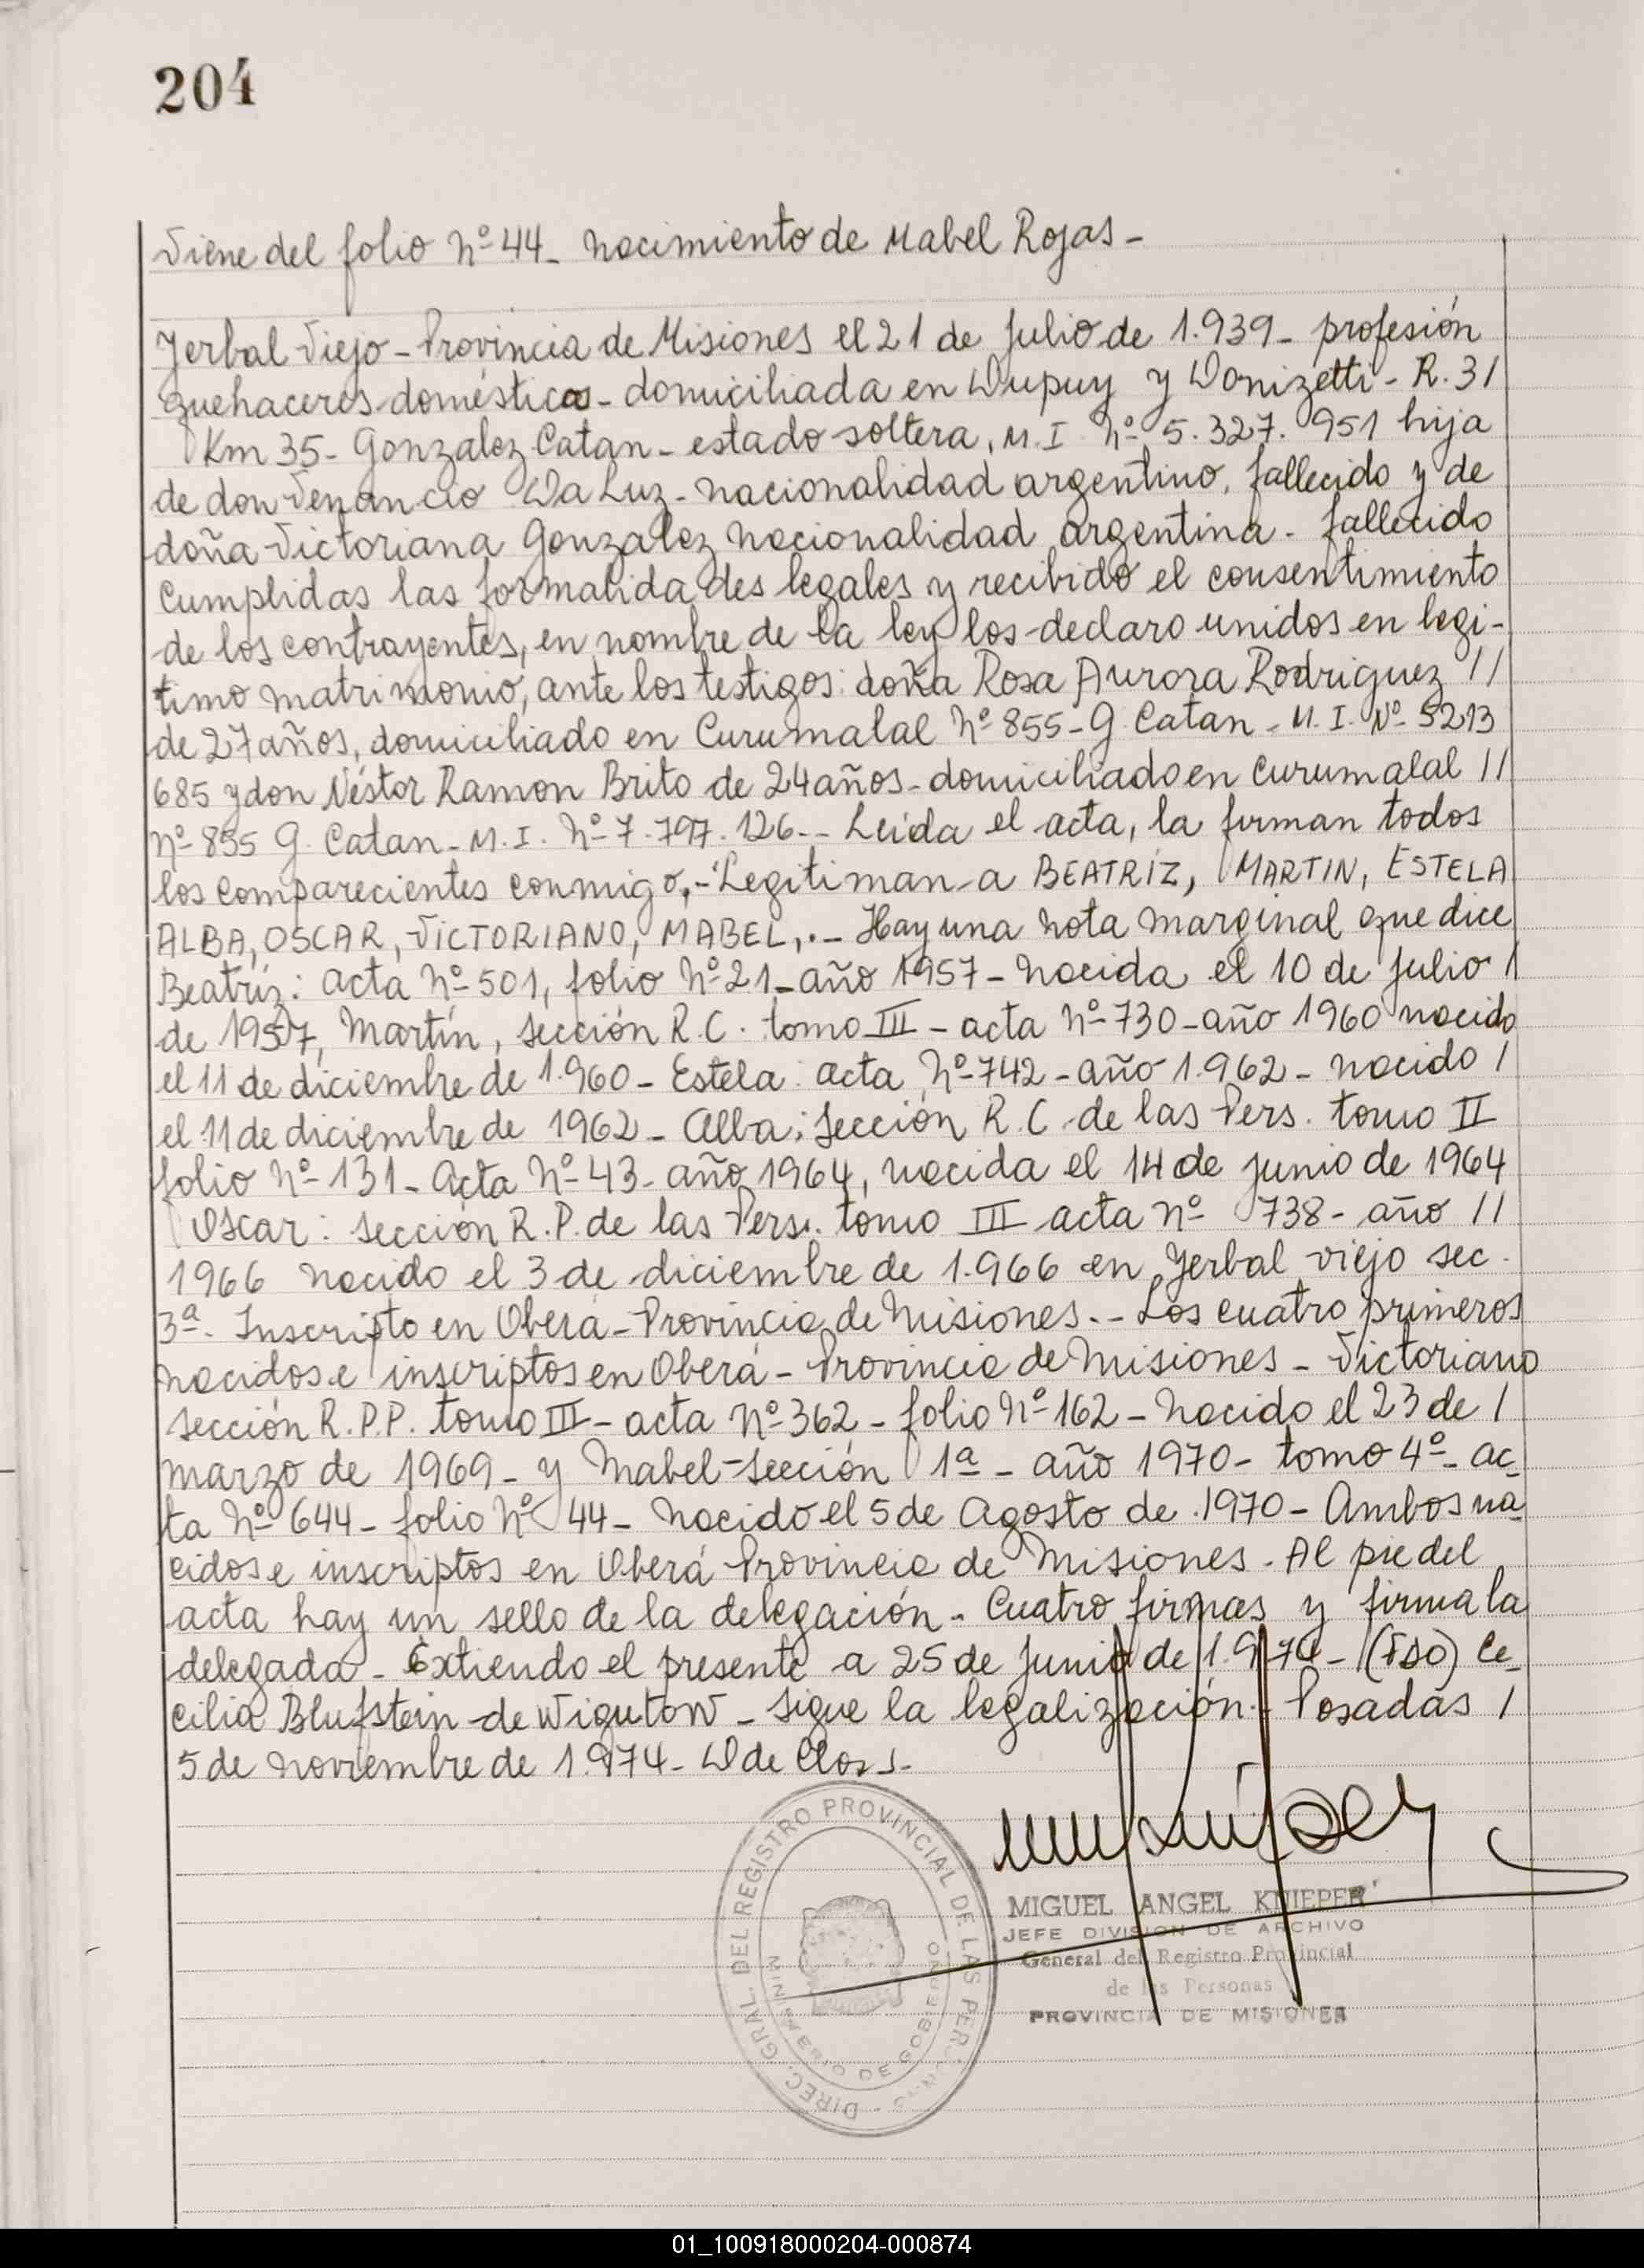 204
Viene del folio Nº 44 - Nacimiento de Mabel Rojas -
Yerbal Viejo - Provincia de Misiones el 21 de Julio de 1.939 - profesión
quehaceres domésticos - domiciliada en Dupuy y Donizetti - R. 31
Km 35 - Gonzalez Catan - estado soltera, M. I. Nº 5.327.951 hija
de don Venancio Da Luz - nacionalidad argentino, fallecido y de
doña Victoriana Gonzalez nacionalidad argentina - fallecido
Cumplidas las formalidades legales y recibido el consentimiento
de los contrayentes, en nombre de la ley los declaro unidos en legi-
timo matrimonio, ante los testigos: doña Rosa Aurora Rodriguez //
de 27 años, domiciliado en Curumalal Nº 855 - G. Catan - M. I. Nº 5213
685 y don Néstor Ramon Brito de 24 años - domiciliado en Curumalal //
Nº 855 G. Catan - M. I. Nº 7.797.126 -- Leida el acta, la firman todos
los comparecientes conmigo, - Legitiman a BEATRÍZ, MARTIN, ESTELA
ALBA, OSCAR, VICTORIANO, MABEL,. - Hay una nota marginal que dice
Beatríz: acta Nº 501, folio Nº 21 - año 1957 - nacida el 10 de Julio /
de 1957, Martín, sección R.C. tomo III - acta Nº 730 - año 1960 nacido
el 11 de diciembre de 1.960 - Estela: acta Nº 742 - año 1.962 - nacido /
el 11 de diciembre de 1962 - Alba; sección R.C. de las Pers. tomo II
folio Nº 131 - Acta Nº 43 - año 1964, nacida el 14 de junio de 1964
Oscar: sección R.P. de las Pers. tomo III acta Nº 738 - año //
1966 nacido el 3 de diciembre de 1.966 en Yerbal viejo sec.
3ª. Inscripto en Oberá - Provincia de Misiones. - Los cuatro primeros
nacidos e inscriptos en Oberá - Provincia de Misiones - Victoriano
sección R.P.P. tomo III - acta Nº 362 - folio Nº 162 - Nacido el 23 de /
marzo de 1969 - y Mabel - sección 1ª - año 1970 - tomo 4º - ac-
ta Nº 644 - folio Nº 44 - Nacido el 5 de Agosto de 1970 - Ambos na-
cidos e inscriptos en Oberá Provincia de Misiones - Al pie del
acta hay un sello de la delegación - Cuatro firmas y firma la
delegada - Extiendo el presente a 25 de Junio de 1.974 - (FDO) Ce-
cilia Blufstein de Wigutow - Sigue la legalización - Posadas /
5 de noviembre de 1.974 - D de Closs -
DIREC. GRAL DEL REGISTRO PROVINCIAL DE LAS PER
MINISTERIO DE GOBIERNO
MIGUEL ANGEL KNIEPER
JEFE DIVISION DE ARCHIVO
General del Registro Provincial
de las Personas
PROVINCIA DE MISIONES
01_100918000204-000874